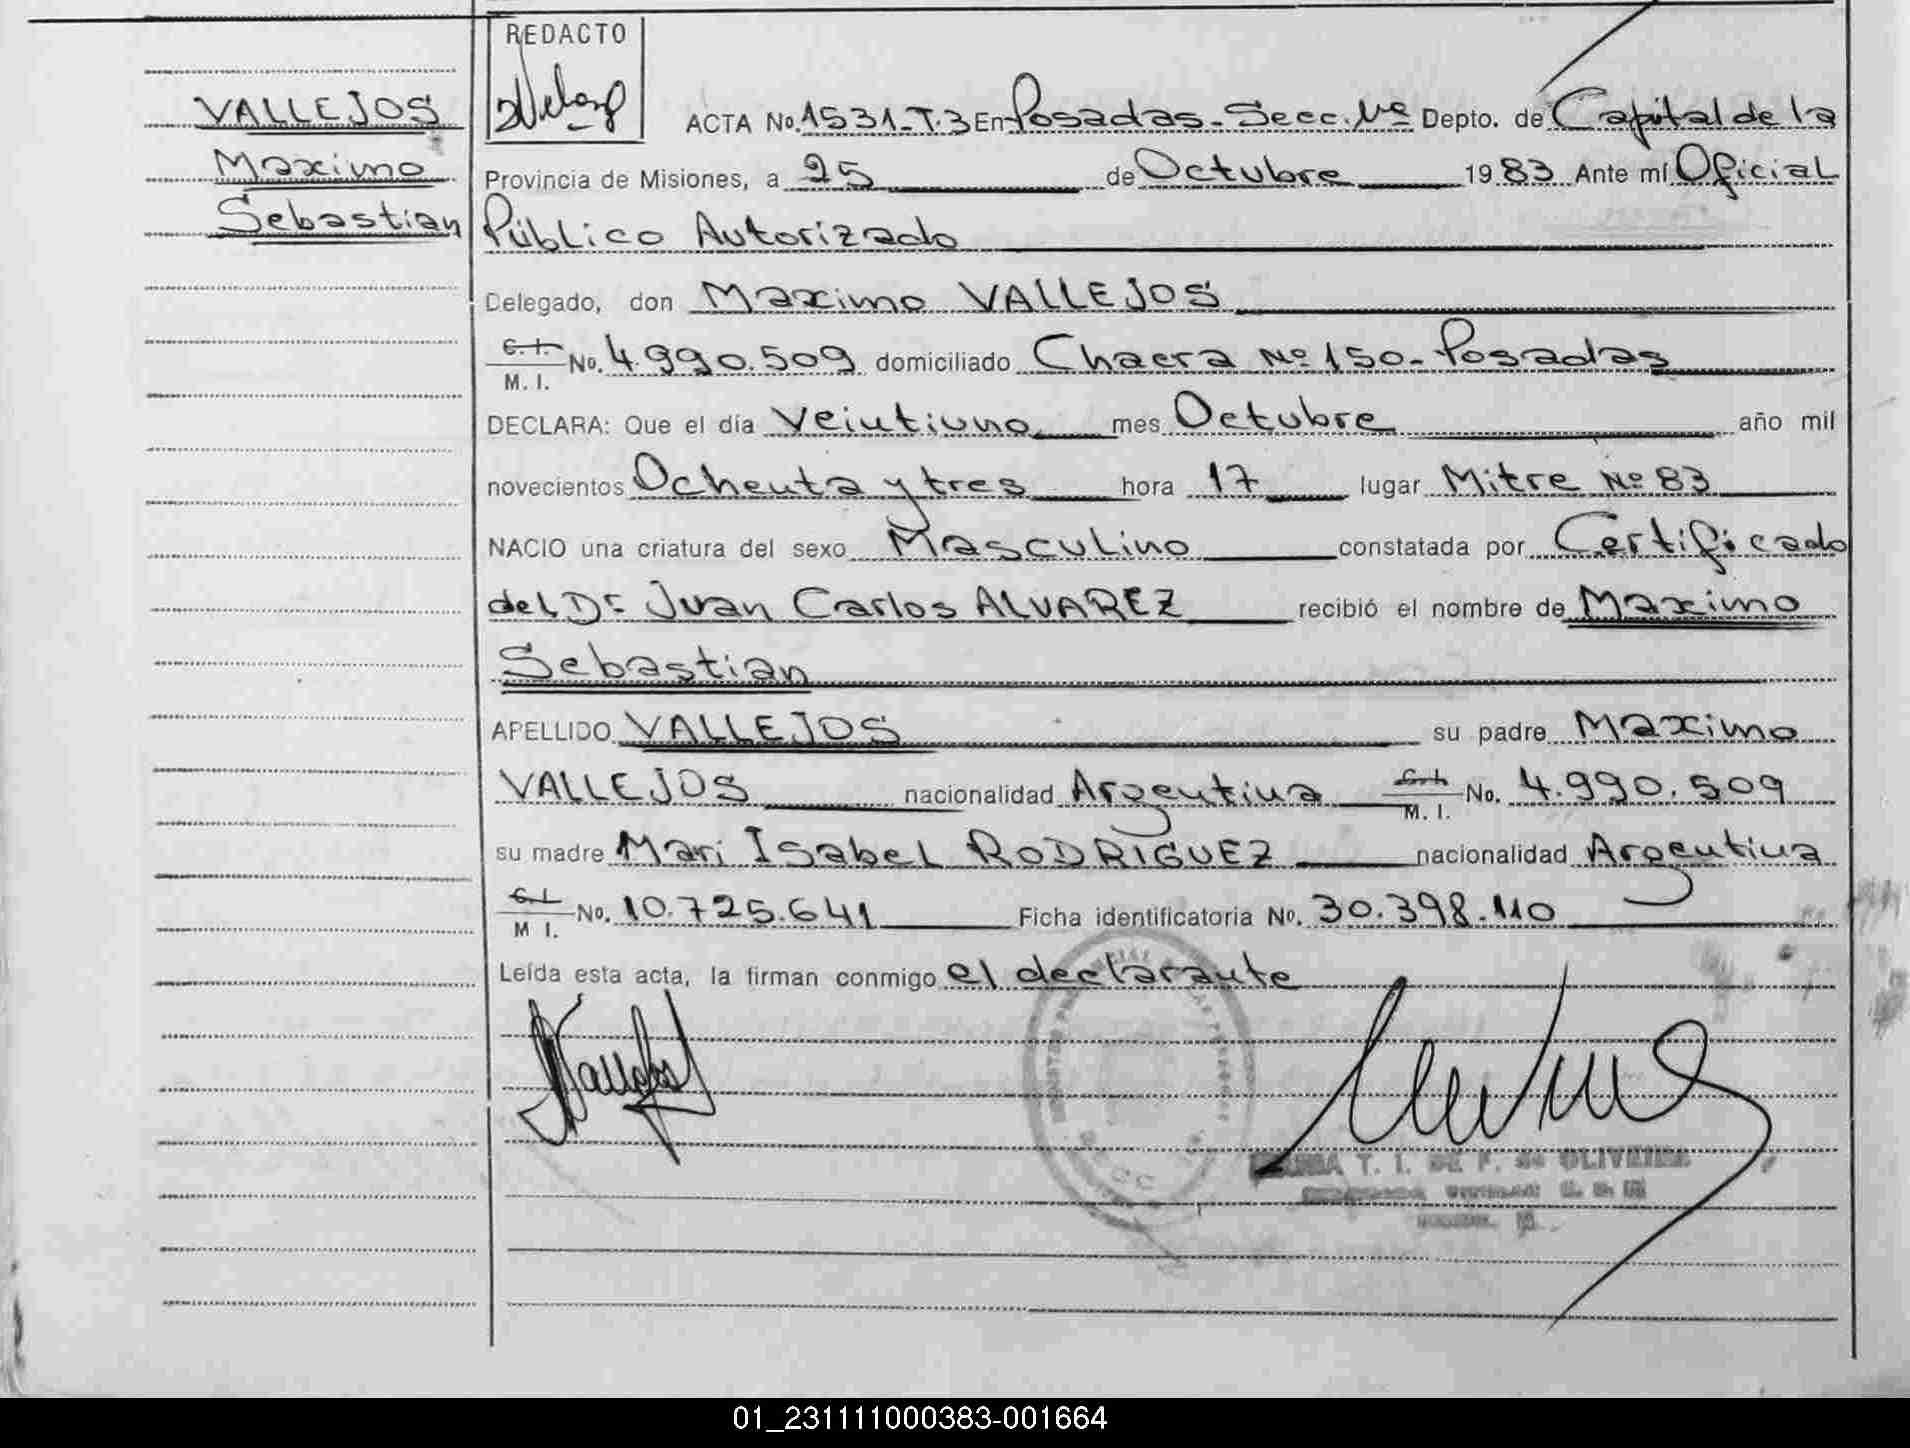 REDACTO
VALLEJOS
Maximo
Sebastian
ACTA No. 1531-T.3 En Posadas-Secc. Nº Depto. de Capital de la
Provincia de Misiones, a 25 de Octubre 1983 Ante mí Oficial
Público Autorizado
Delegado, don Maximo VALLEJOS
C.I. No. 4.990.509 domiciliado Chacra Nº 150- Posadas
M. I.
DECLARA: Que el día Veintiuno mes Octubre año mil
novecientos Ochenta y tres hora 17 lugar Mitre Nº 83
NACIO una criatura del sexo Masculino constatada por Certificado
del Dr Juan Carlos ALVAREZ recibió el nombre de Maximo
Sebastian
APELLIDO VALLEJOS su padre Maximo
VALLEJOS nacionalidad Argentina C.I. No. 4.990.509
M. I.
su madre Mari Isabel RODRIGUEZ nacionalidad Argentina
C.I. No. 10.725.641 Ficha identificatoria No. 30.398.110
M I.
Leída esta acta, la firman conmigo el declarante
Vallejos
T. I. DE F. de OLIVEIRA
01_231111000383-001664